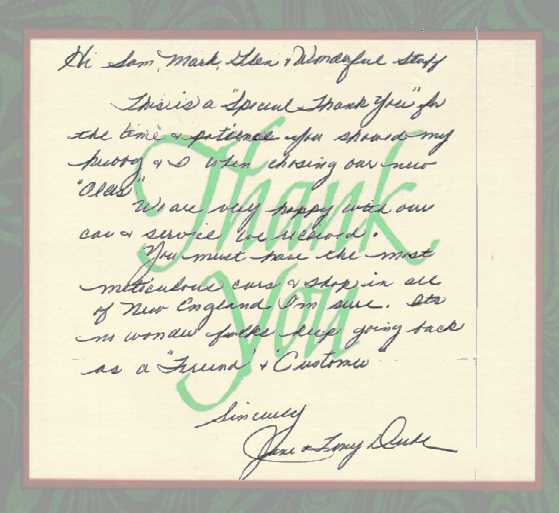 Hi Sam, Mark, Glen & Wonderful Staff
This is a "Special Thank You" for
the time & patience you showed my
hubby & I when chosing our new
"Olds"
We are very happy with our
car & service we received.
You must have the most
meticulous cars & shop in all
of New England I'm sure. Its
no wonder folks keep going back
as a "Friend" & "Customer"
Sincerely
Jane & Tony Dube
Thank
You